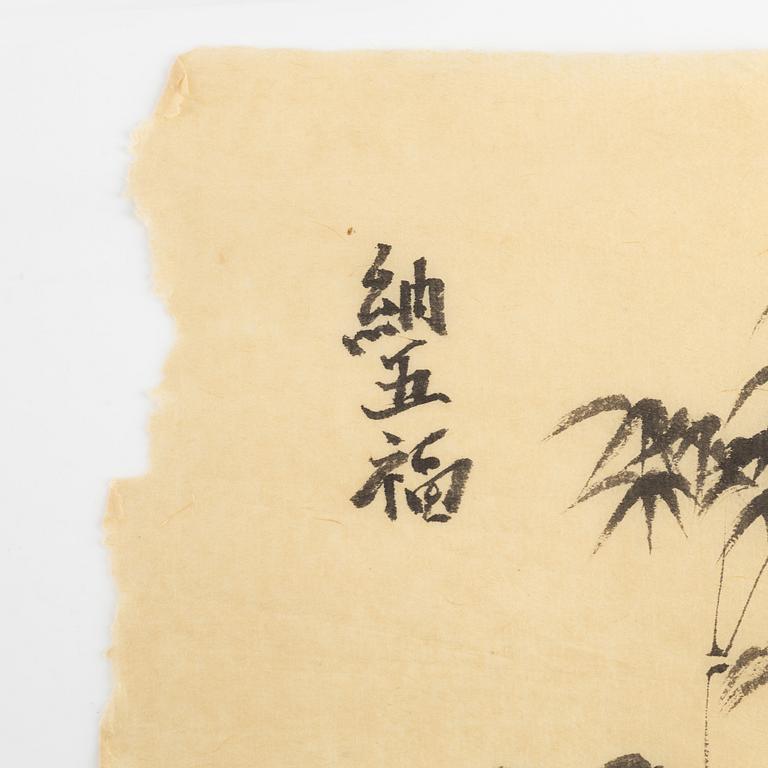 納五福